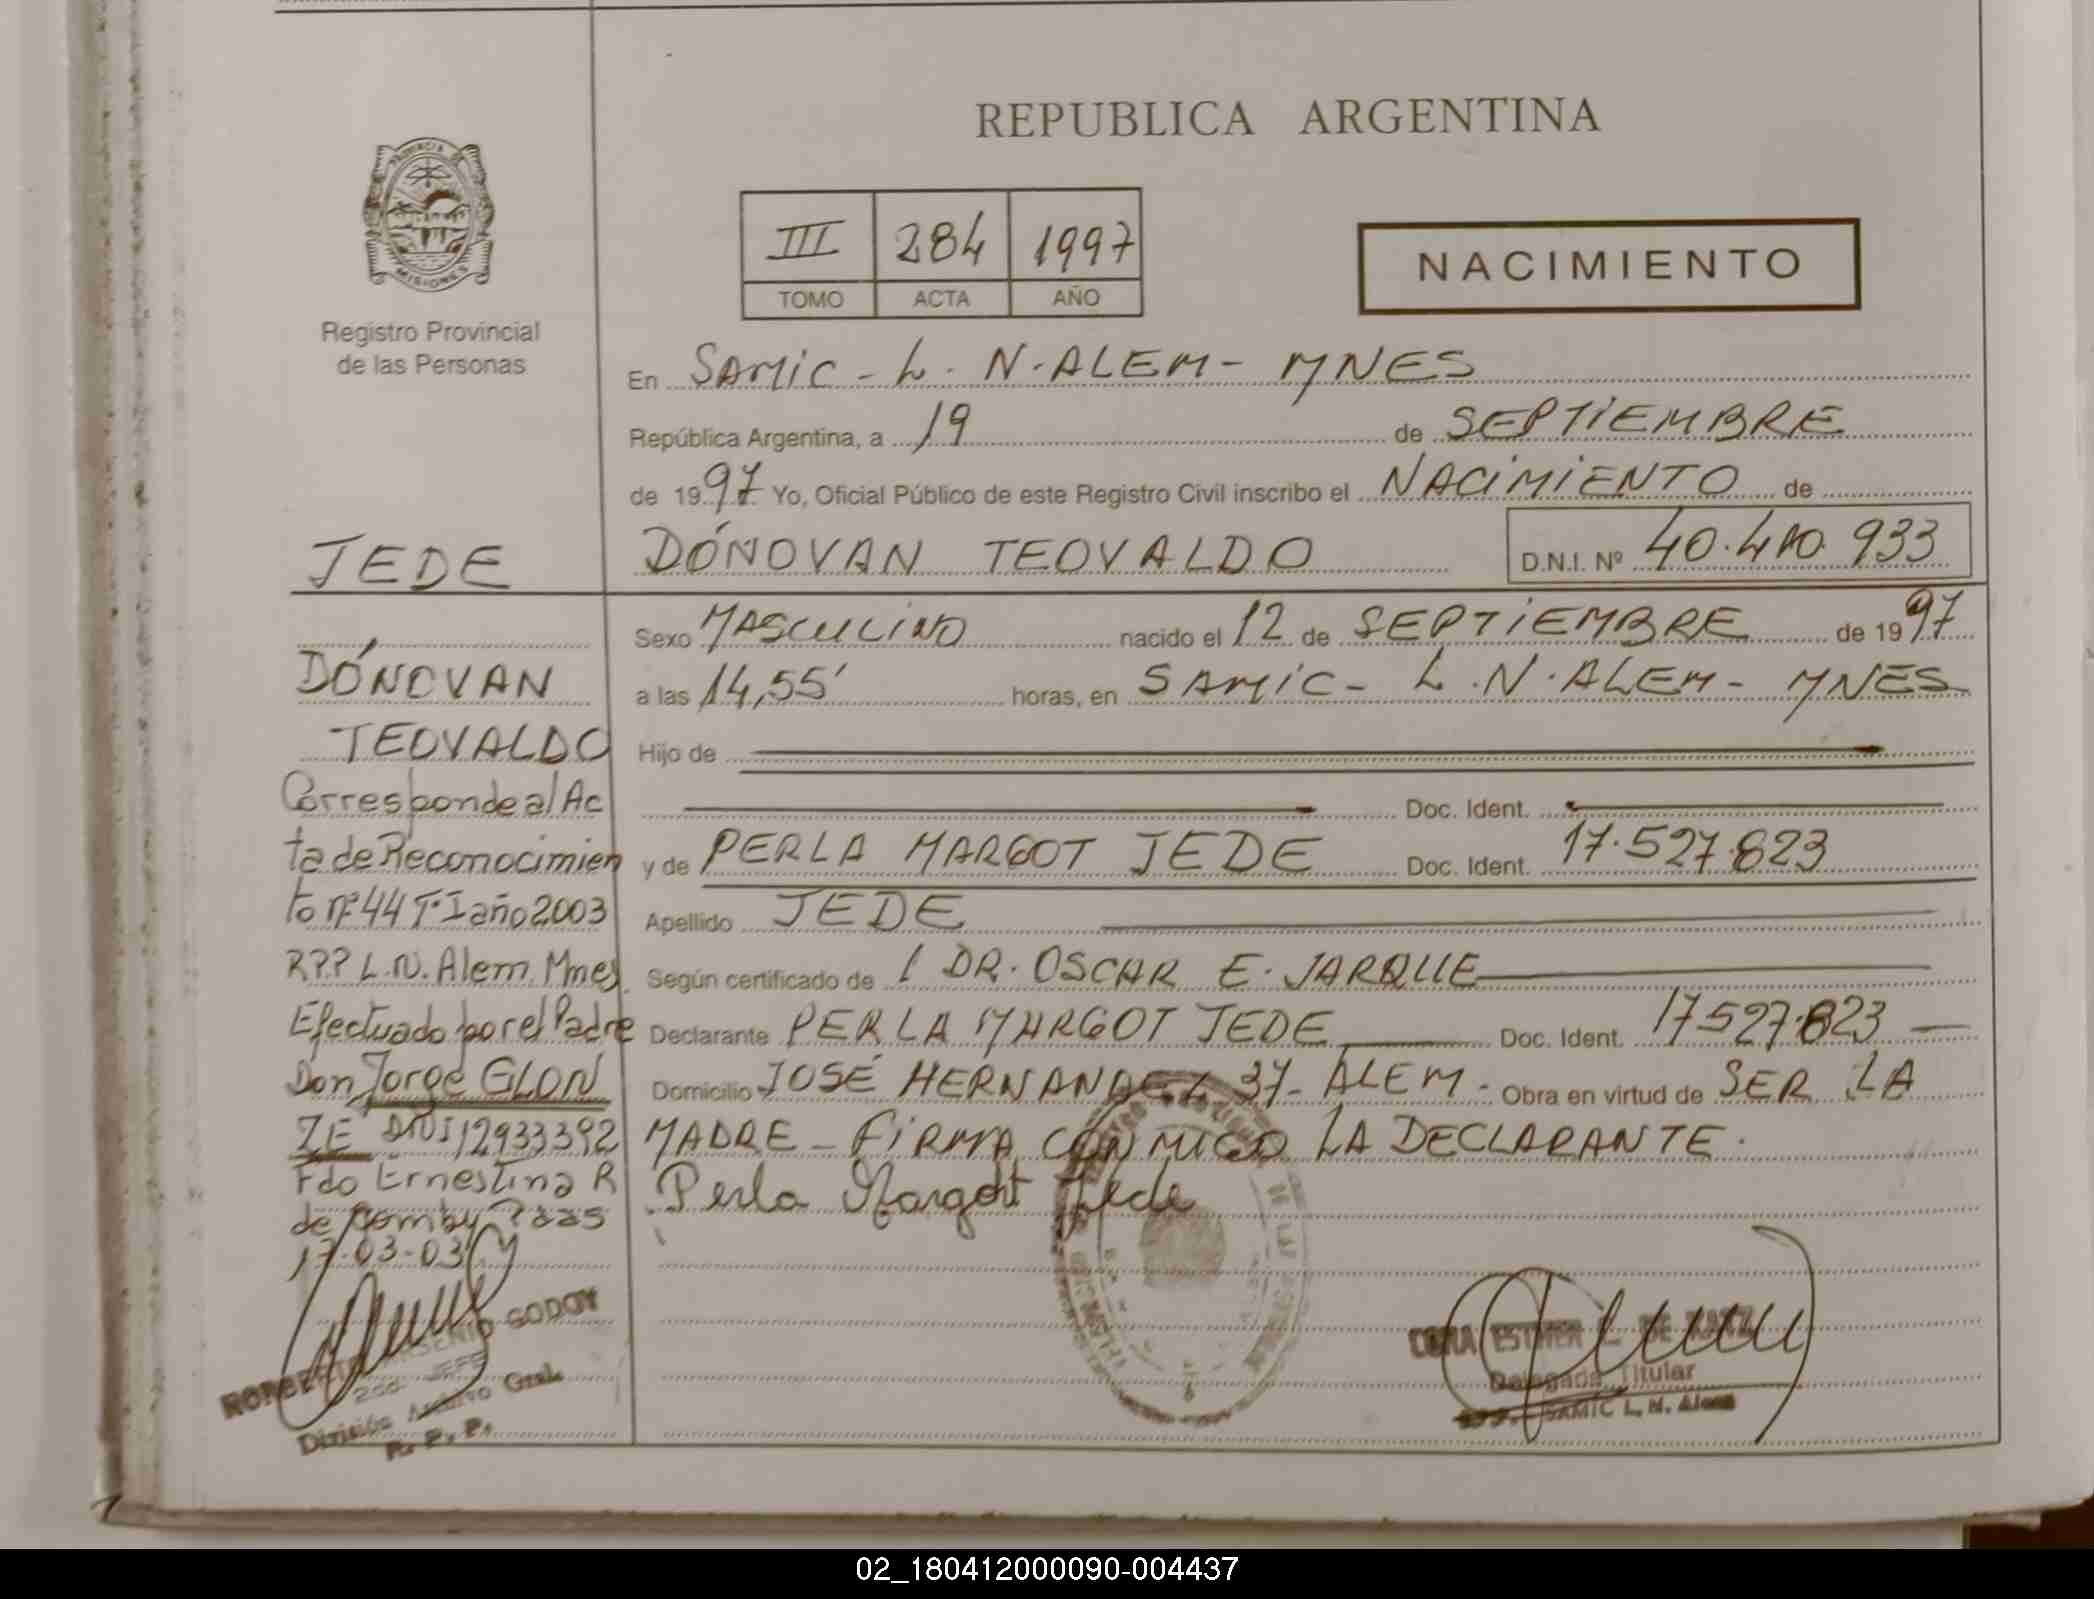 REPUBLICA ARGENTINA
PROVINCIA DE
MISIONES
Registro Provincial
de las Personas
III 284 1997
TOMO ACTA AÑO
NACIMIENTO
En SAMIC - L. N. ALEM - MNES
República Argentina, a 19 de SEPTIEMBRE
de 1997 Yo, Oficial Público de este Registro Civil inscribo el NACIMIENTO de
DÓNOVAN TEOVALDO D.N.I. Nº 40.410.933
Sexo MASCULINO nacido el 12 de SEPTIEMBRE de 1997
a las 14,55' horas, en SAMIC - L. N. ALEM - MNES
Hijo de
Doc. Ident.
y de PERLA MARGOT JEDE Doc. Ident. 17.527.823
Apellido JEDE
Según certificado de 1 DR. OSCAR E. JARQUE
Declarante PERLA MARGOT JEDE Doc. Ident. 17527.823
Domicilio JOSÉ HERNANDEZ 37 - ALEM - Obra en virtud de SER LA
MADRE - FIRMA CONMIGO LA DECLARANTE.
Perla Margot Jede
JEDE
DÓNOVAN
TEOVALDO
Corresponde al Ac
ta de Reconocimien
to nº 44 Tº I año 2003
R.P.P L.N. Alem. Mnes
Efectuado por el Padre
Don Jorge GLON
ZE DNI 12933392
Fdo Ernestina R
de Pomby Pdas
17-03-03
ROBERTO ARSENIO GODOY
2do. JEFE
División Archivo Gral.
R. P. P.
ESTHER DE
Delegada Titular
SAMIC L. N. Alem
02_180412000090-004437